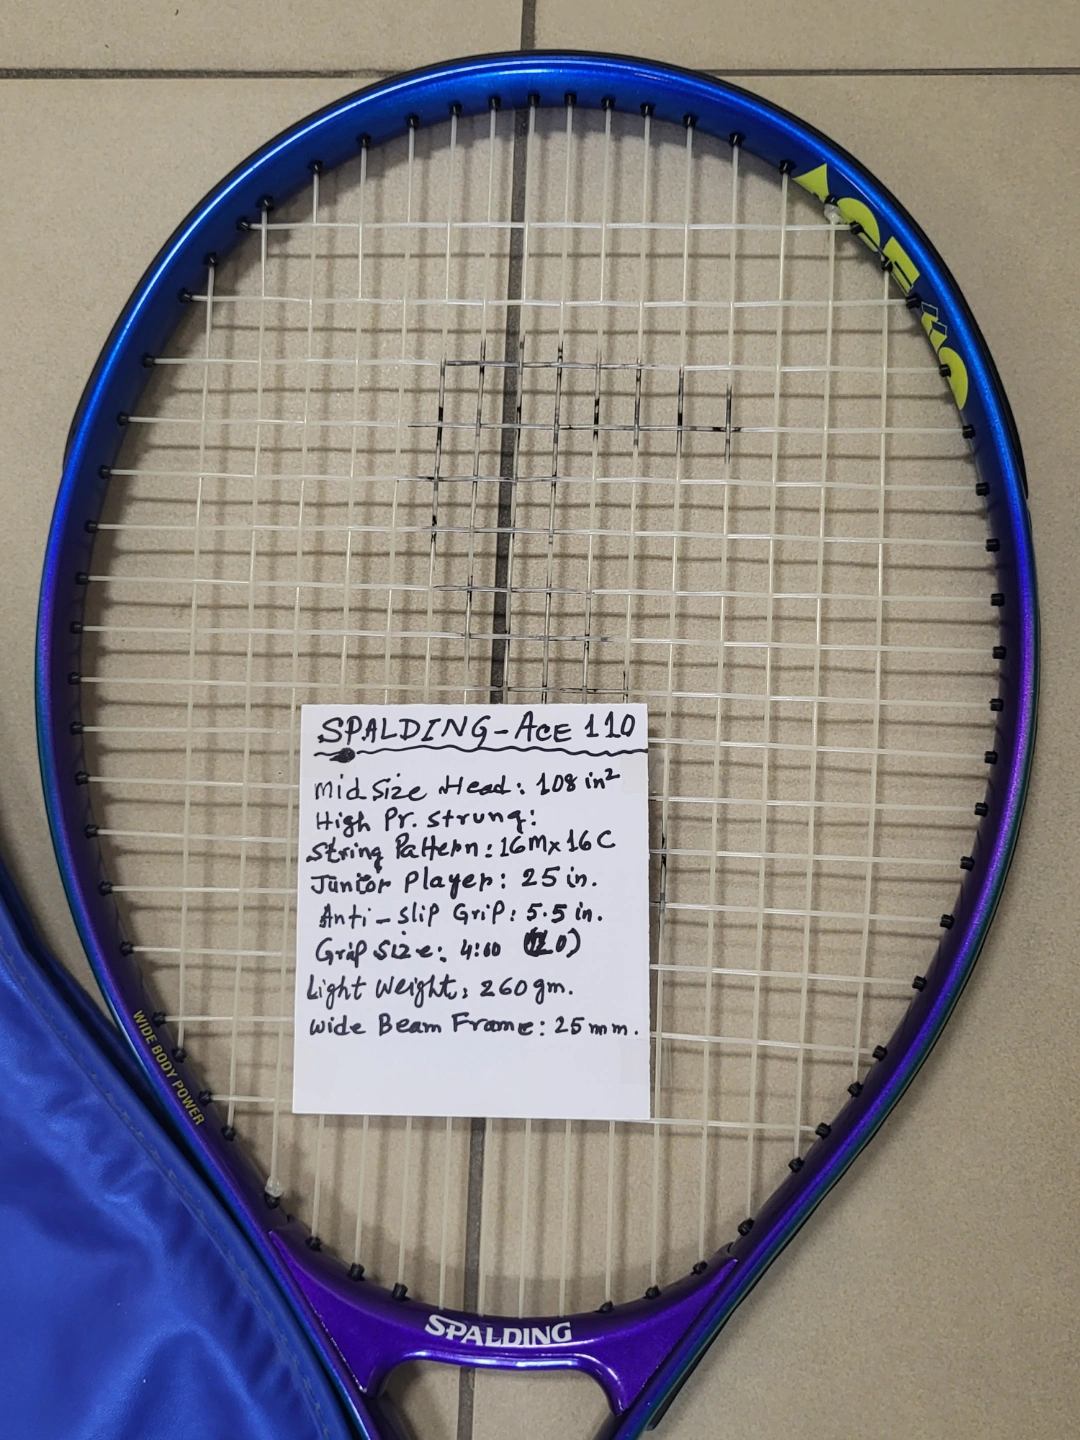 ACE 110
SPALDING-ACE 110
Mid Size Head: 108 in²
High Pr. Strung:
String Pattern: 16M x 16C
Junior Player: 25 in.
Anti-Slip Grip: 5.5 in.
Grip Size: 4:00 (L0)
Light Weight: 260gm.
Wide Beam Frame: 25mm.
WIDE BODY POWER
SPALDING